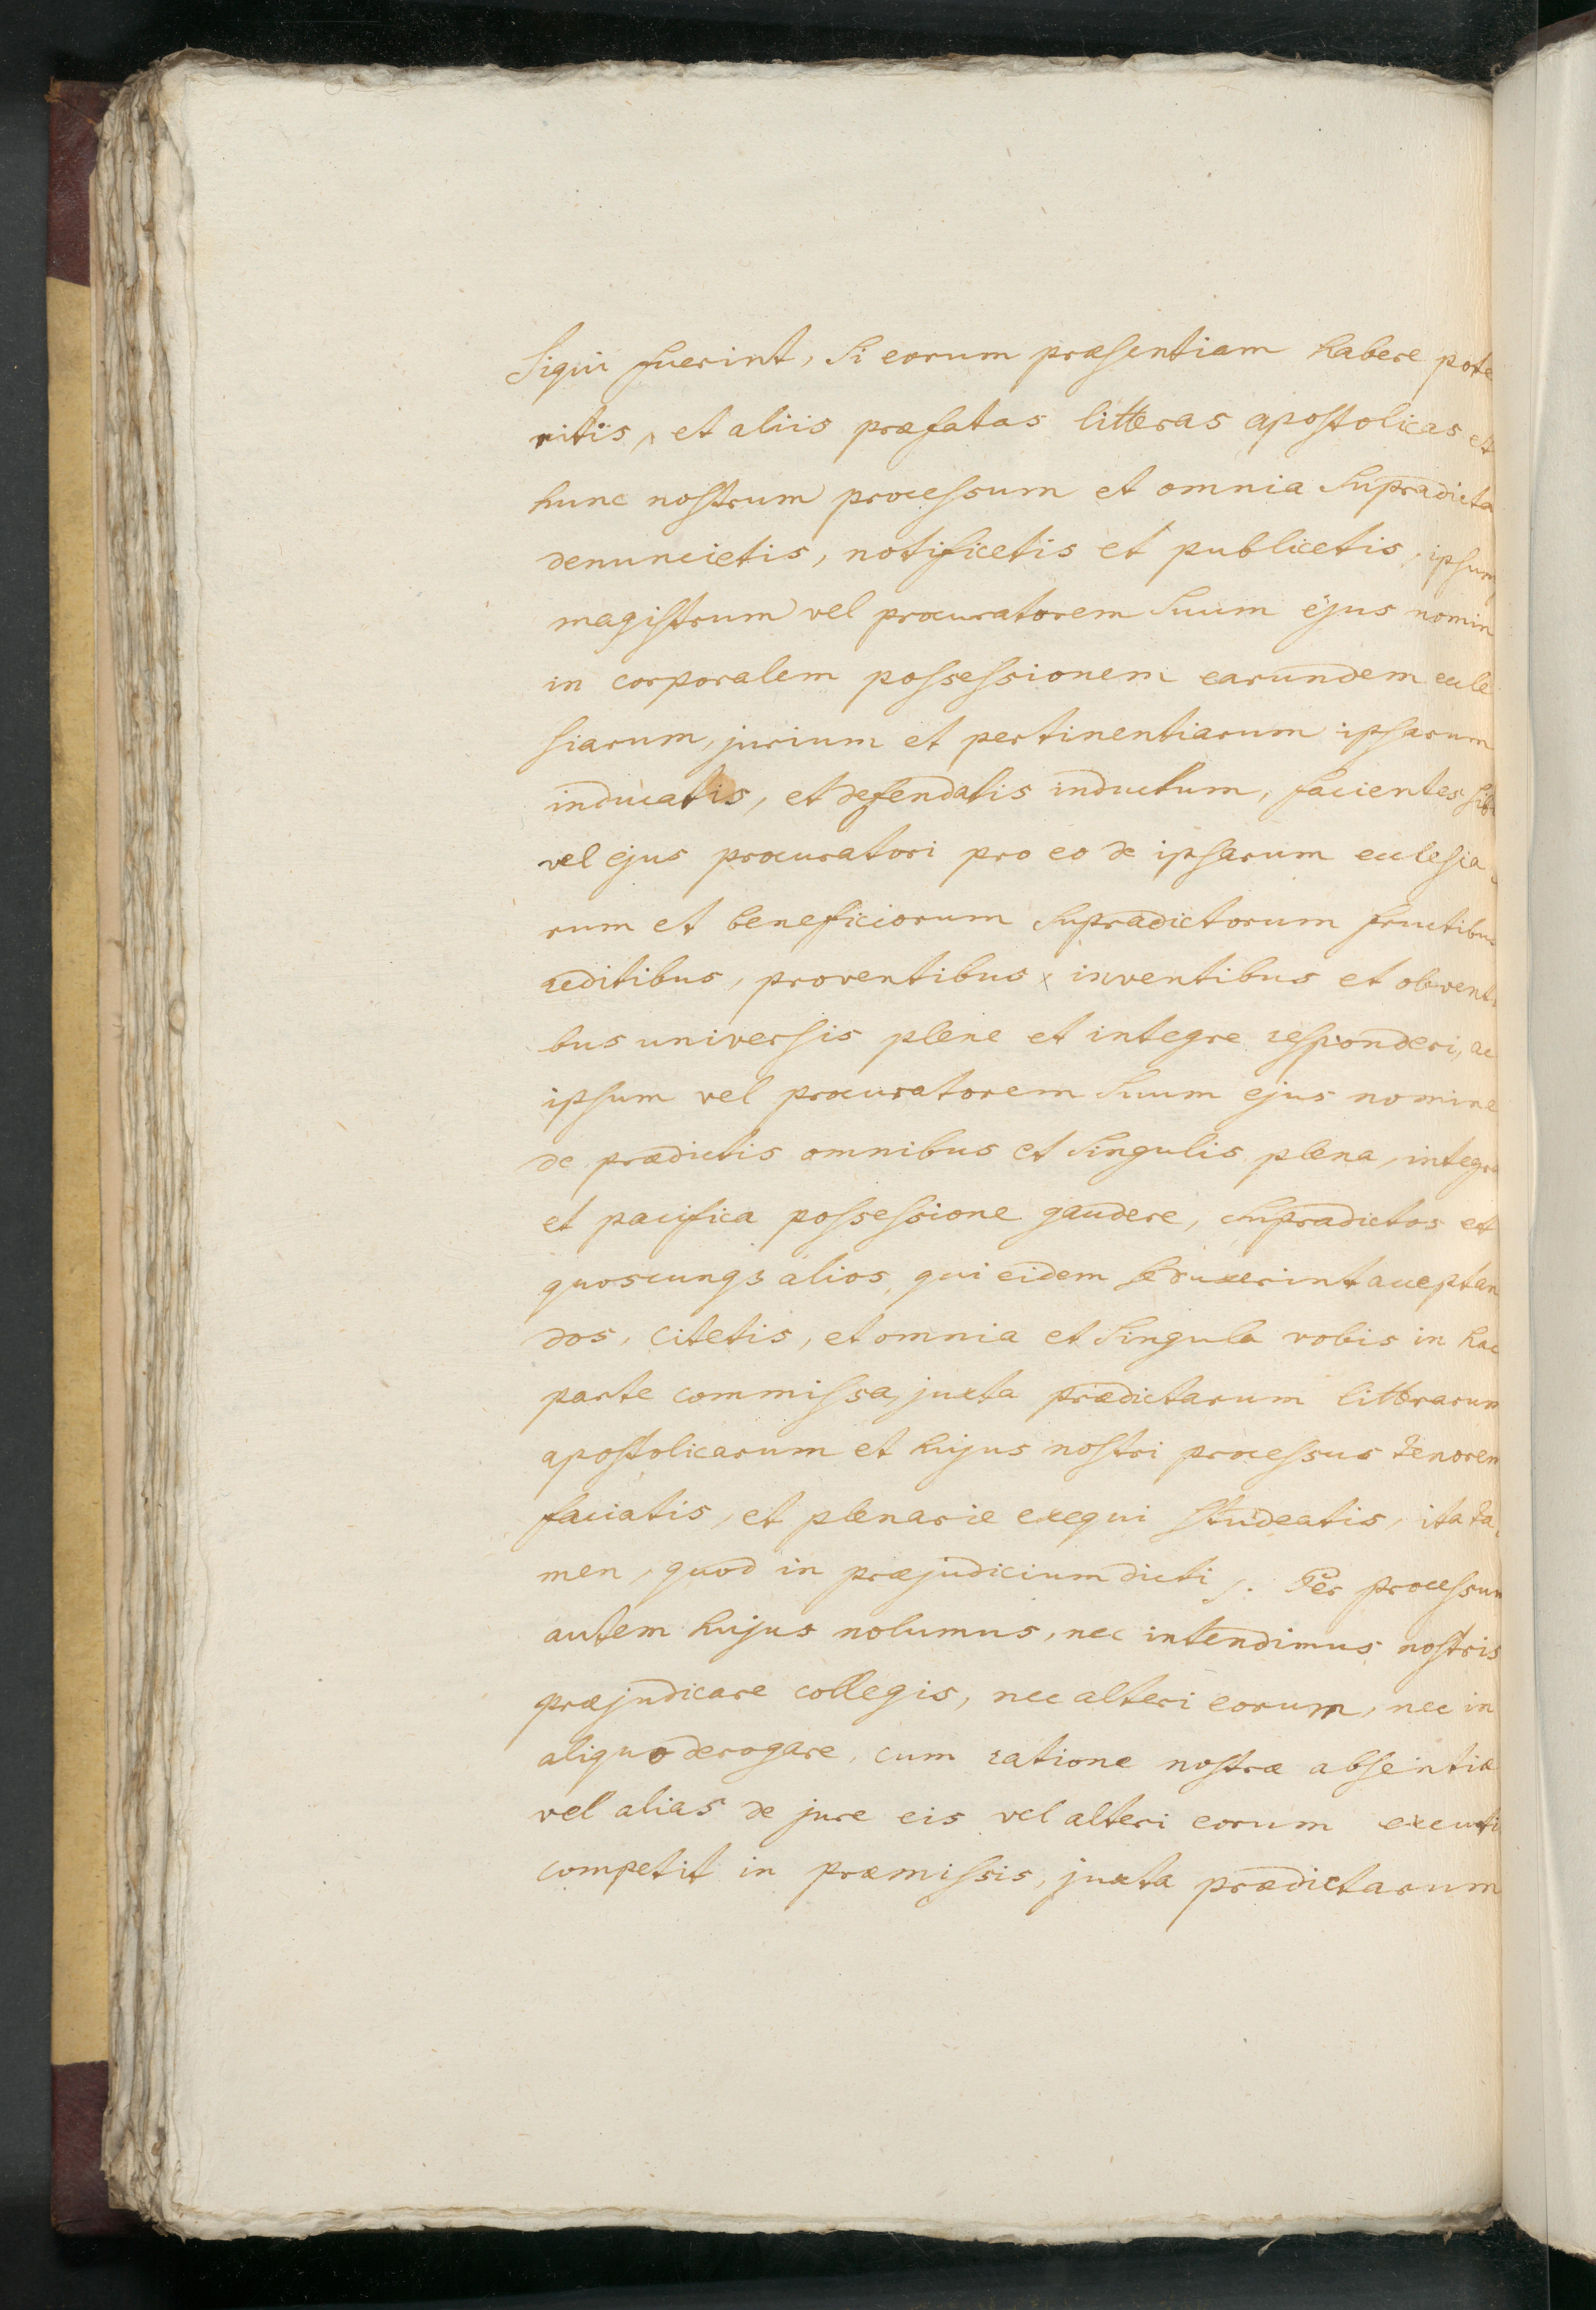 Siqui fuerint, si eorum præsentiam habere pote
ritis, et aliis præfatas litteras apostolicas et
hunc nostrum processum et omnia supradicta
denuncietis, notificetis et publicetis, ipsum
magistrum vel procuratorem suum ejus nomin
in corporalem possessionem earundem eccle
siarum, jurium et pertinentiarum ipsarum
inducatis, et defendatis inductum, facientes sibi
vel ejus procuratori pro eo de ipsarum ecclesia
rum et beneficiorum supradictorum fructibus
reditibus, proventibus, inventibus et obventi
bus universis plene et integre responderi, ac
ipsum vel procuratorem suum ejus nomine
de prædictis omnibus et singulis plena, integra
et pacifica possessione gaudere, supradictos et
quoscunqз alios, qui eidem acceptan
dos, citetis, et omnia et singula vobis in hac
parte commissa, juxta prædictarum litterarum
apostolicarum et hujus nostri processus tenorem
faciatis, et plenarie exequi studeatis, ita ta
men, quod in præjudicium dicti /. Per processum
autem hujus nolumus, nec intendimus nostris
præjudicare collegis, nec alteri eorum, nec in
aliquo derogare, cum ratione nostræ absentiæ
vel alias de jure eis vel alteri eorum
competit in præmissis, juxta prædictarum